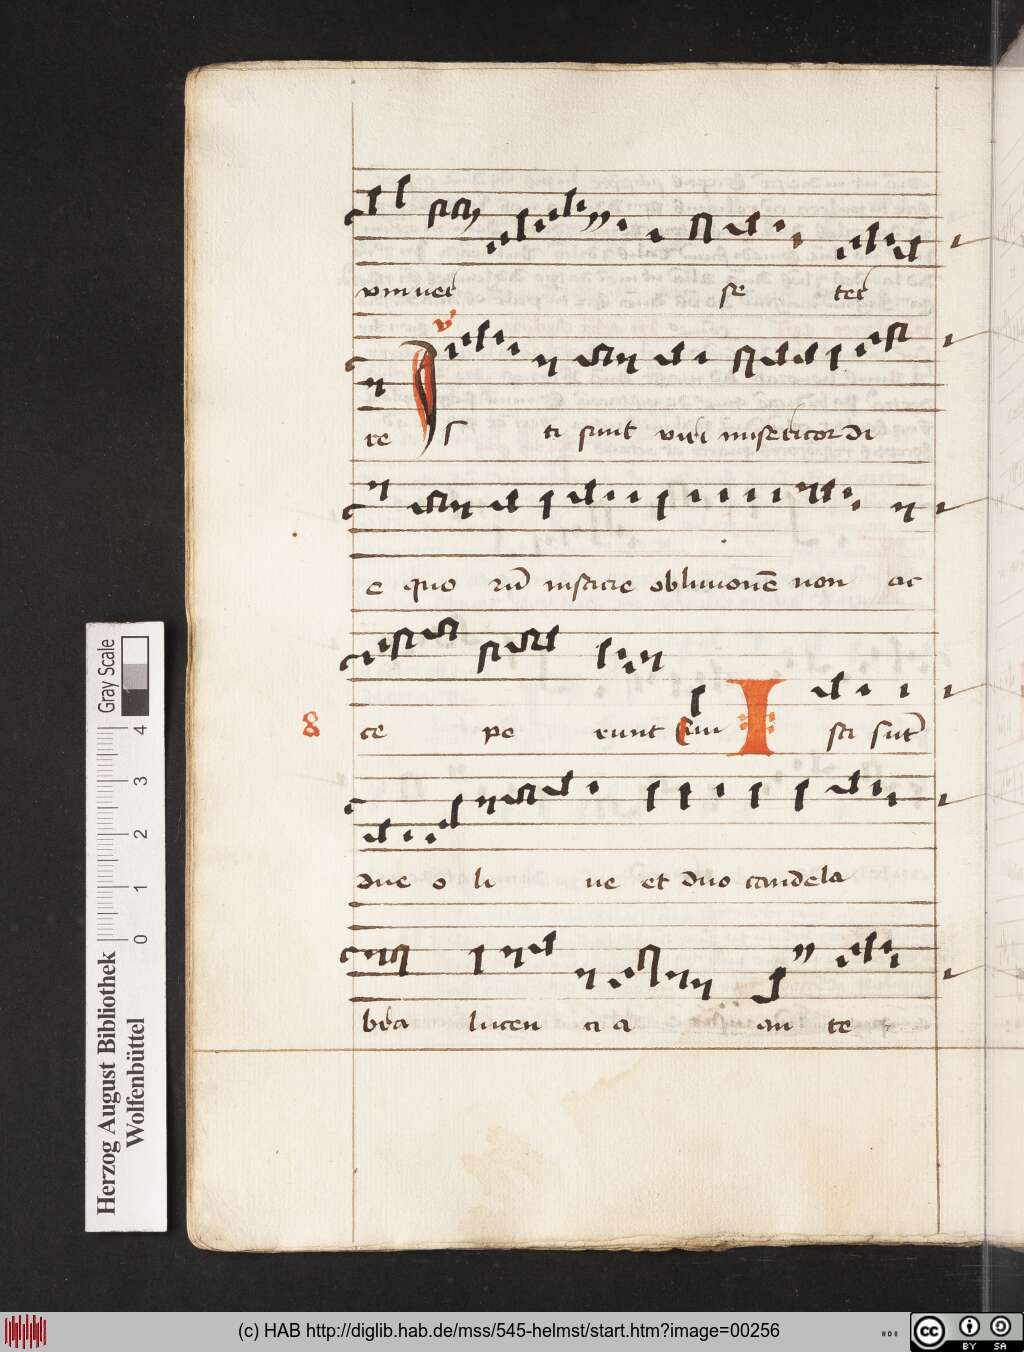 vniuet se tet
v
re Isti sunt viri misericordi
e quo rū iusticie obliuionē non ac
8 ce pe runt Cum Isti sūt
due o li ue et duo candela
bra lucen ci a an te
Gray Scale
4 3 2 1 0
Herzog August Bibliothek
Wolfenbüttel
(c) HAB http://diglib.hab.de/mss/545-helmst/start.htm?image=00256
cc BY SA